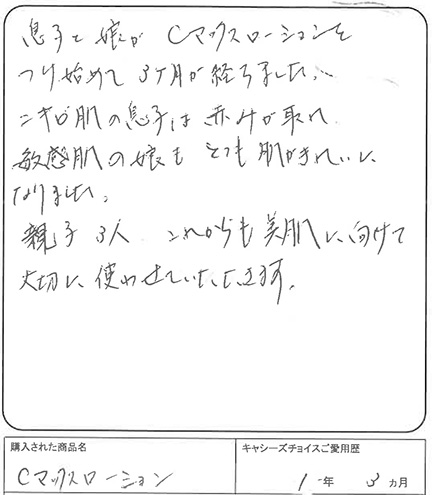 息子と娘が Cマックスローションを
つけ始めて 3ヶ月が経ちました。
ニキビ肌の息子は赤みが取れ
敏感肌の娘も とても肌がきれいに
なりました。
親子3人 これからも美肌に向けて
大切に使わせていただきます。
購入された商品名
Cマックスローション
キャシーズチョイスご愛用歴
1 年 3 ヵ月